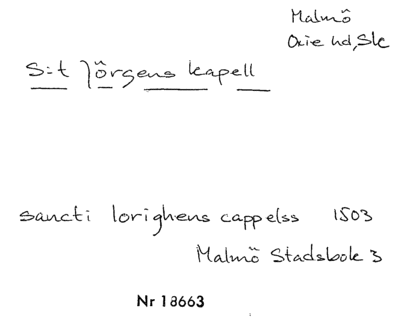 Malmö
Oxie hd, Sk
S:t Jörgens kapell
sancti Iorighens cappelss 1503
Malmö Stadsbok 3
Nr 18663